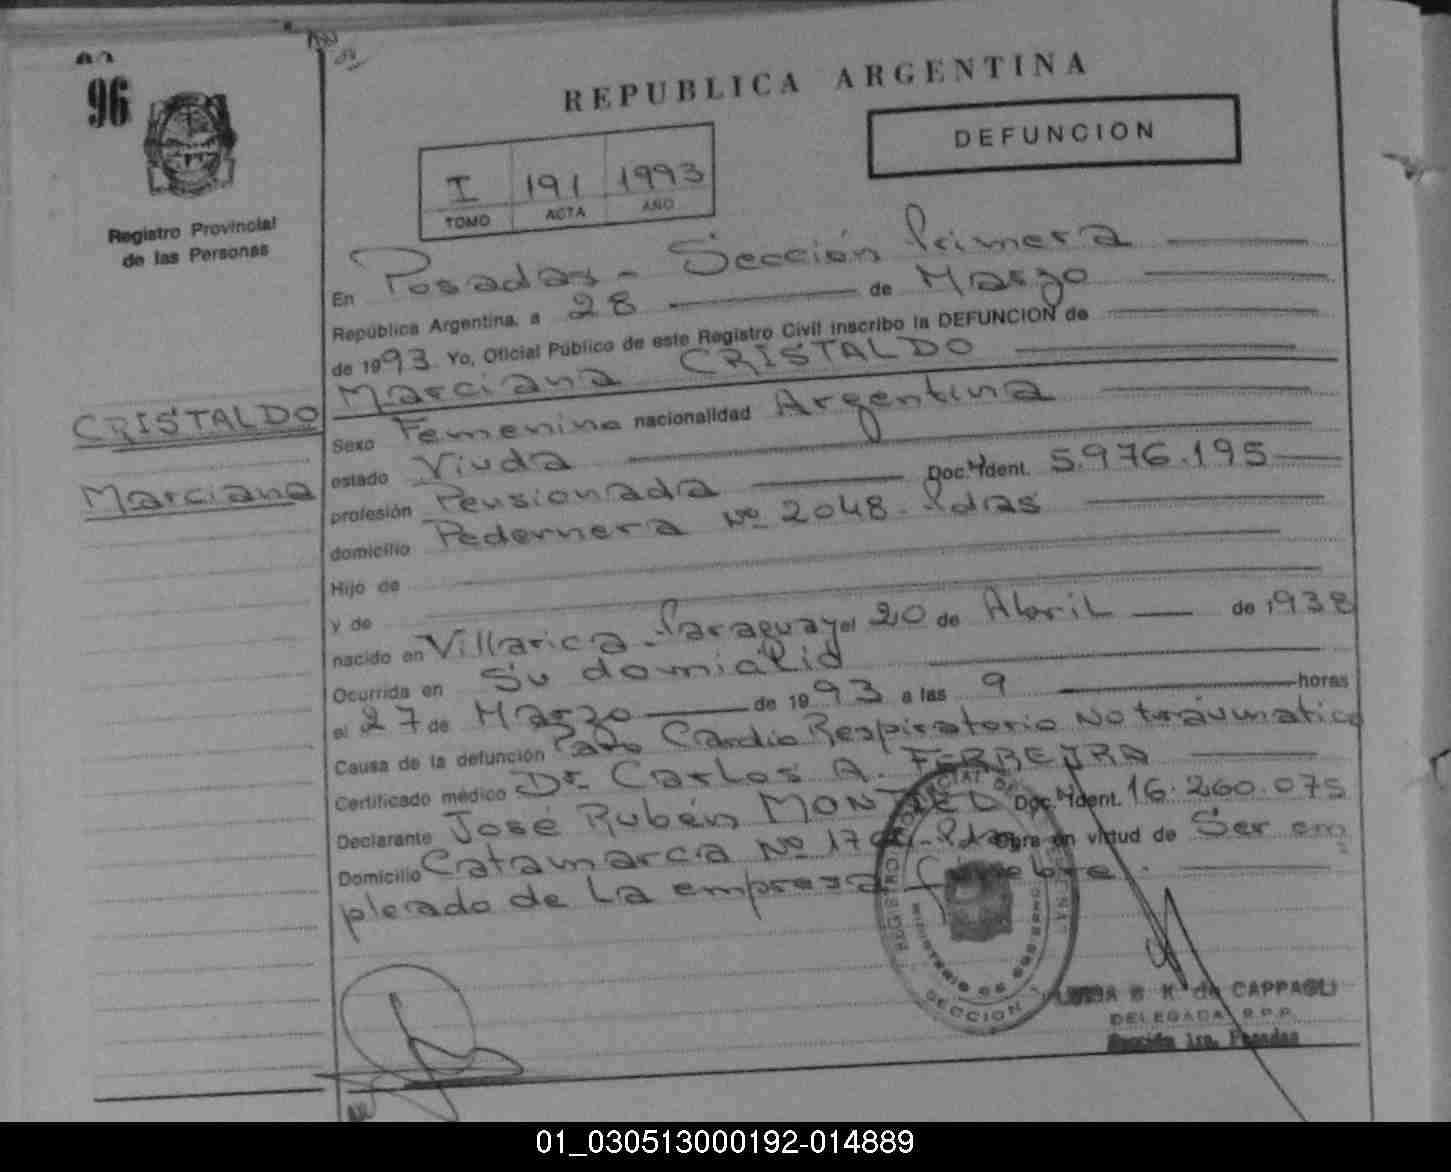 96
REPUBLICA ARGENTINA
DEFUNCION
I 191 1993
TOMO ACTA AÑO
Registro Provincial
de las Personas
En Posadas - Sección Primera
República Argentina, a 28 de Marzo
de 1993. Yo, Oficial Público de este Registro Civil inscribo la DEFUNCION de
Marciana CRISTALDO
CRISTALDO
Marciana
Sexo Femenino nacionalidad Argentina
estado Viuda
profesión Pensionada Doc. Ident. 5.976.195
domicilio Pedernera Nº 2048. Pdas
Hijo de
y de
nacido en Villarica - Paraguay el 20 de Abril de 1938
Ocurrida en Su domicilio
el 27 de Marzo de 1993 a las 9 horas
Causa de la defunción Paro Cardio Respiratorio No traumatico
Certificado médico Dr. Carlos A. FERREJRA
Declarante José Rubén Doc. Ident. 16.260.075
Domicilio Catamarca Nº Obra en virtud de Ser em
pleado de La empresa funebre.
REGISTRO PROVINCIAL DE
MINISTERIO DE GOBIERNO
SECCION 1
B. K. de CAPPAGLI
DELEGADA R.P.P.
Sección 1ra. Posadas
01_030513000192-014889